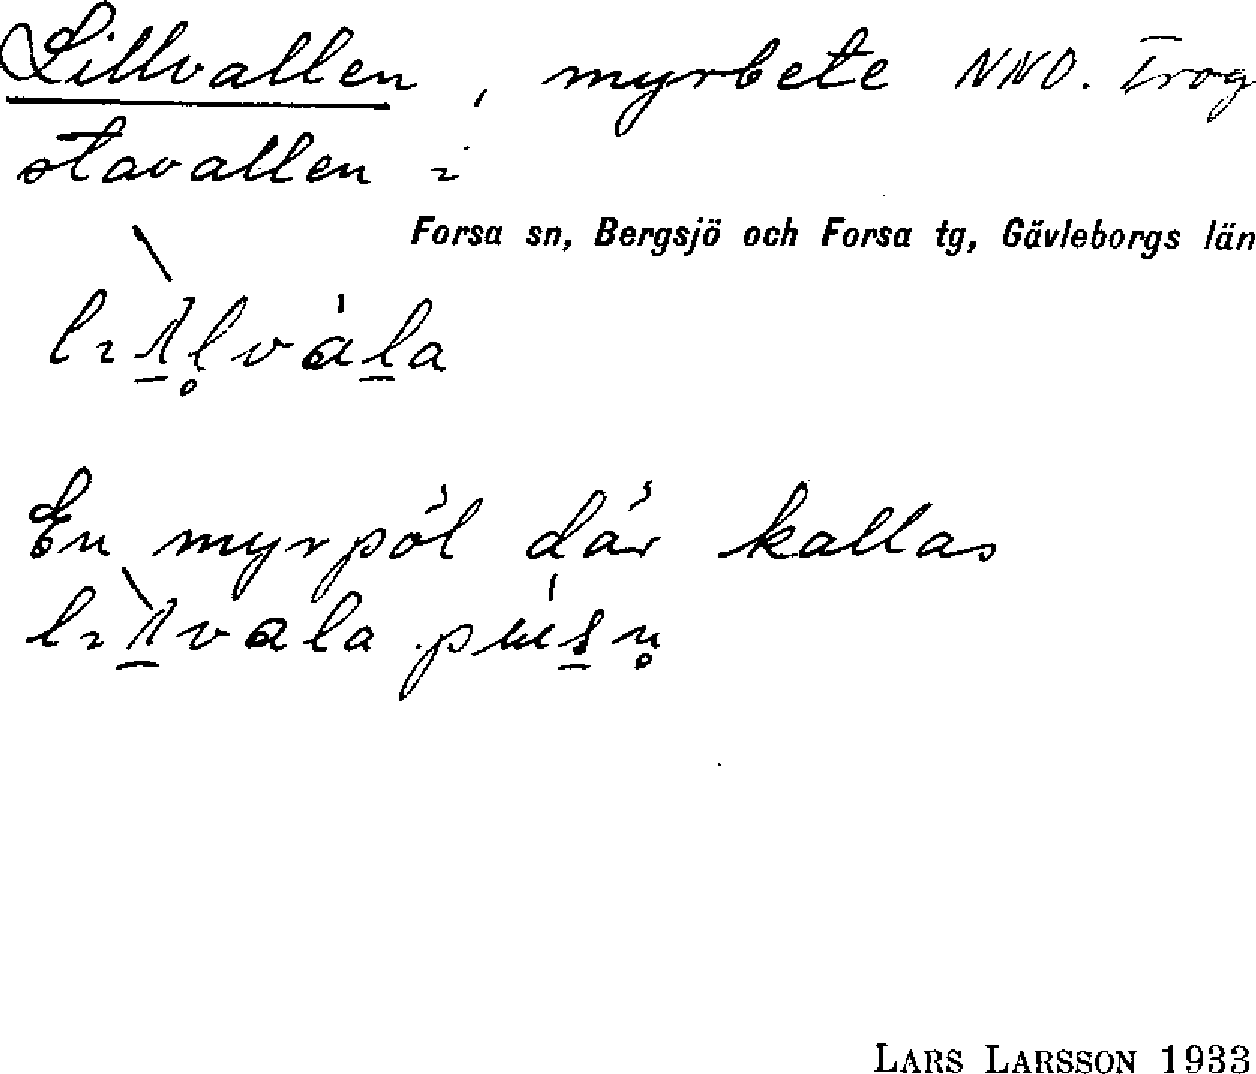 Lillvallen, myrbete NNO. Trog
stavallen i
Forsa sn, Bergsjö och Forsa tg, Gävleborgs län
En myrpöl där kallas
LARS LARSSON 1933